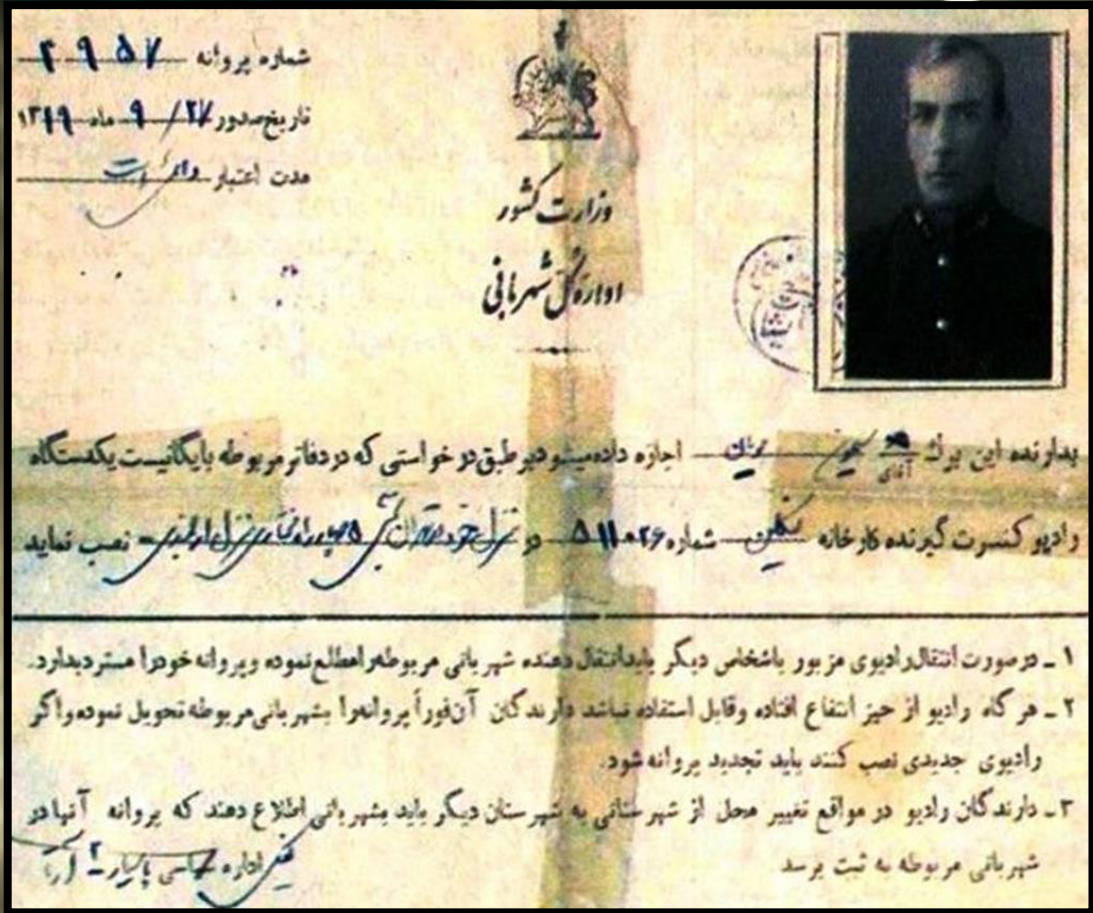 شماره پروانه ۲۹۵۷
تاریخ صدور ۲۷/ ۹ ماه ۱۳۱۹
مدت اعتبار دائم است
وزارت کشور
اداره کل شهربانی
بدارنده این برگ آقای اجازه داده میشود بر طبق درخواستی که در دفاتر مربوطه بایگانیست یکدستگاه
رادیو کنسرت گیرنده کارخانه شماره ۵۱۱۰۲۶ در منزل خود نصب نماید
۱ ـ در صورت انتقال رادیوی مزبور باشخاص دیگر باید انتقال دهنده شهربانی مربوطه را مطلع نموده و پروانه خود را مسترد بدارد.
۲ ـ هر گاه رادیو از حیز انتفاع افتاده و قابل استفاده نباشد دارندگان آن فوراً پروانه را بشهربانی مربوطه تحویل نموده و اگر
رادیوی جدیدی نصب کنند باید تجدید پروانه شود.
۳ ـ دارندگان رادیو در مواقع تغییر محل از شهرستانی به شهرستان دیگر باید بشهربانی اطلاع دهند که پروانه آنها در
شهربانی مربوطه به ثبت برسد
اداره سیاسی پاسیار ۲